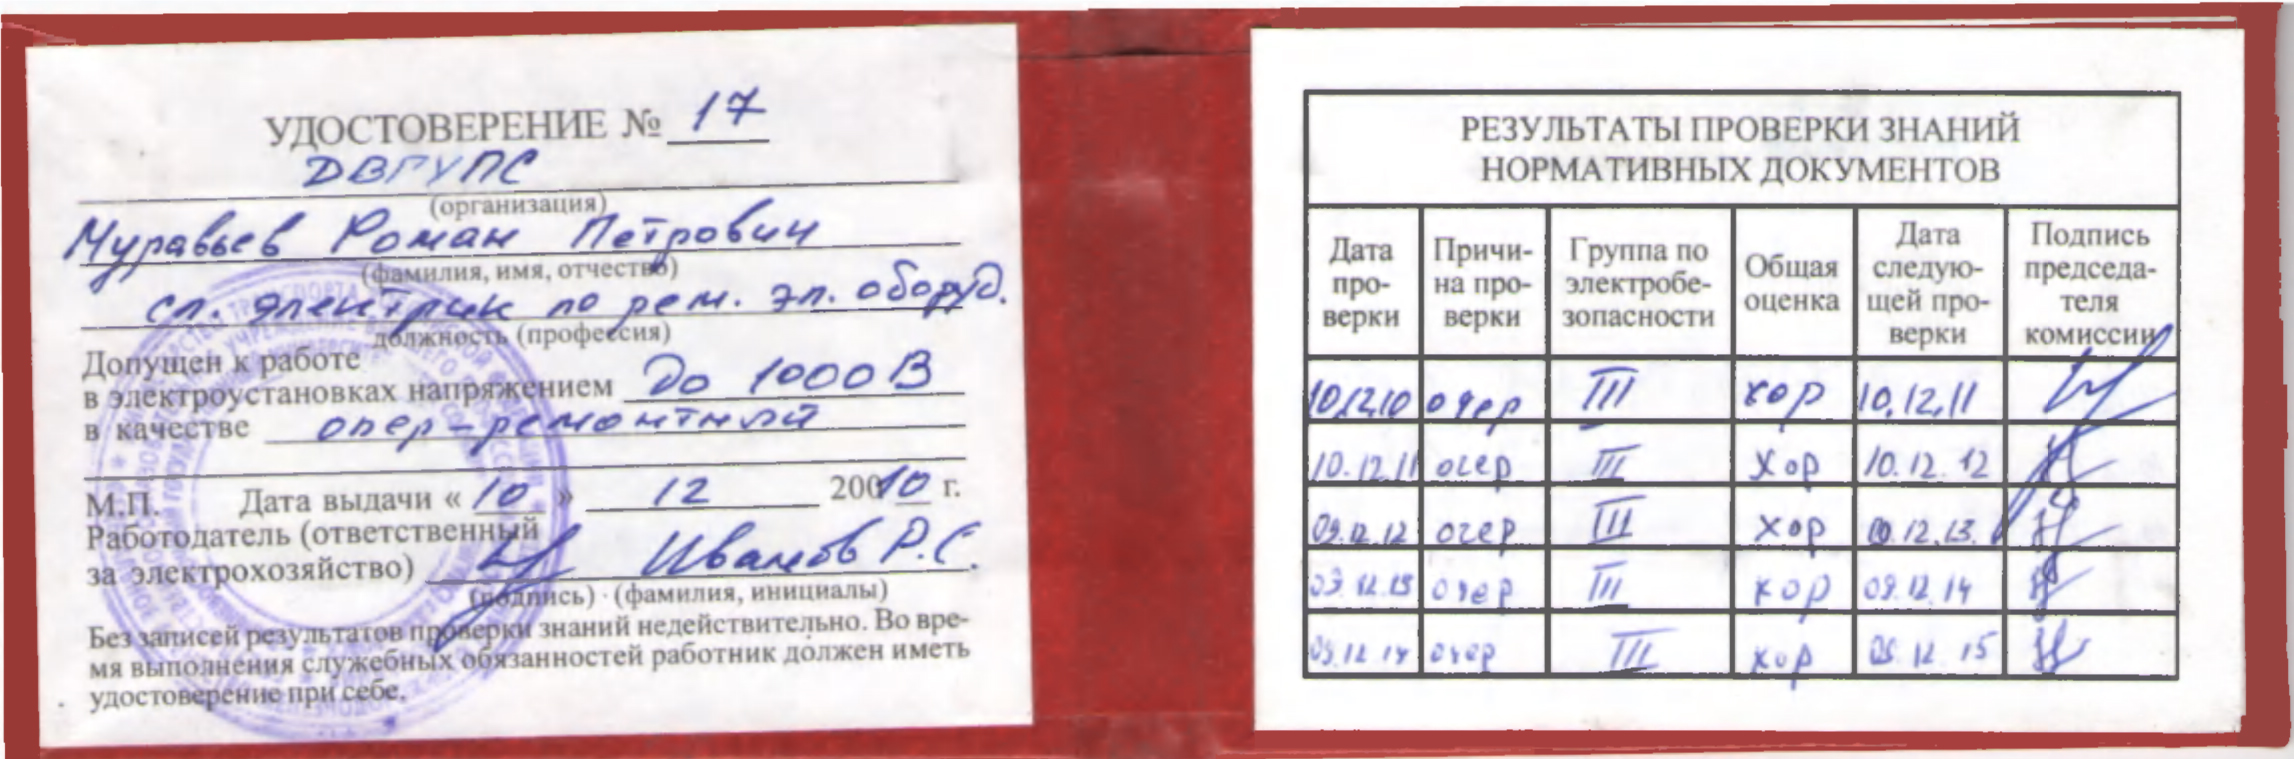 УДОСТОВЕРЕНИЕ № 17
ДВГУПС
(организация)
Муравьев Роман Петрович
(фамилия, имя, отчество)
сл. электрик по рем. эл. оборуд.
должность (профессия)
Допущен к работе
в электроустановках напряжением до 1000 В
в качестве опер-ремонтный
М.П. Дата выдачи « 10 » 12 20010 г.
Работодатель (ответственный
за электрохозяйство) Иванов Р.С.
(подпись) (фамилия, инициалы)
Без записей результатов проверки знаний недействительно. Во вре-
мя выполнения служебных обязанностей работник должен иметь
удостоверение при себе.
РЕЗУЛЬТАТЫ ПРОВЕРКИ ЗНАНИЙ
НОРМАТИВНЫХ ДОКУМЕНТОВ
Дата про- верки Причи- на про- верки Группа по электробе- зопасности Общая оценка Дата следую- щей про- верки Подпись председа- теля комиссии
10.12.10 очер III хор 10.12.11
10.12.11 очер III хор 10.12.12
09.12.12 очер III хор 12.13.
09.12.13 очер III хор 09.12.14
09.12 14 очер III хор 09.12.15